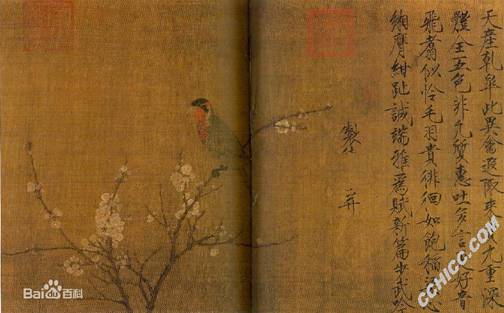 天產乾皐此異禽遐陬來九重深
體全五色非凡質惠吐多言好音
飛翥似憐毛羽貴徘徊如飽稻
緗膺紺趾誠端雅爲賦新篇步武吟
製
并
Bai百科
CCHICC.COM